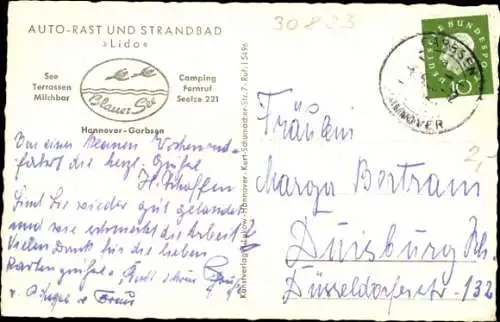 30823
AUTO-RAST UND STRANDBAD
»Lido«
See
Terrassen
Milchbar
Blauer See
Camping
Fernruf
Seelze 221
Hannover-Garbsen
Von einer kleinen Wochenend-
fahrt die herzl. Grüße
H. Schaffen
Sind Sie wieder gut gelandet
und wie schmeckt die Arbeit?
Vielen Dank für die lieben
Kartengrüße
Kunstverlag Hannover · Kurt-Schumacher-Str. 7 · Ruf: 15496
DEUTSCHE BUNDESPOST
10
GARBSEN
HANNOVER
2,-
Fräulein
Marga Bertram
Duisburg Rh.
Düsseldorferstr. 132